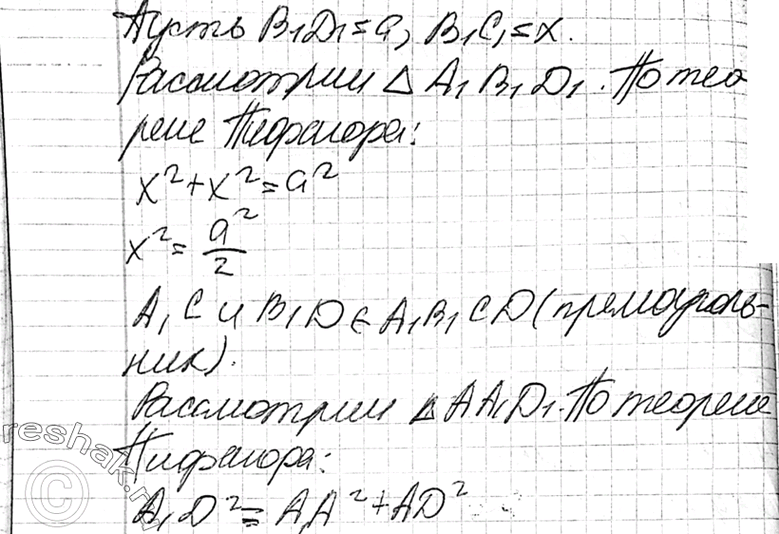 Пусть B₁D₁=a, B₁C₁=x.
Рассмотрим △ A₁B₁D₁. По тео
реме Пифагора:
x²+x²=a²
x²=a²/2
A₁C и B₁D ∈ A₁B₁CD (прямоуголь-
ник).
Рассмотрим △AA₁D₁. По теореме
Пифагора:
A₁D²=A₁A²+AD²
reshak.ru